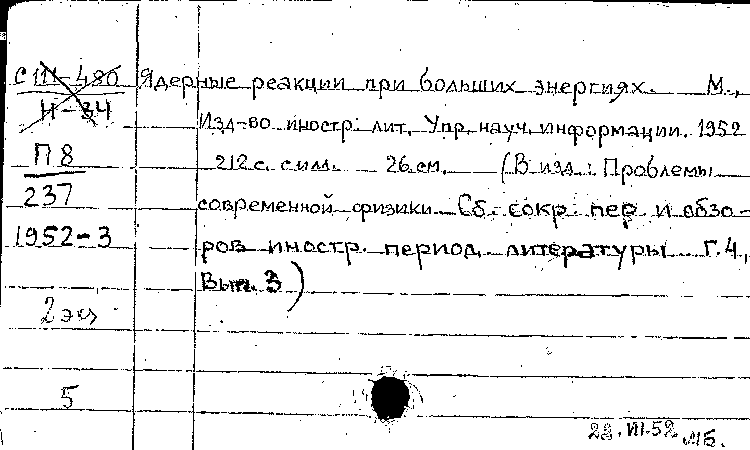 С 111-480 Ядерные реакции при больших энергиях. М.,
11-34
Изд-во иностр. лит. Упр. науч. информации. 1952
П 8
212 с. с илл. 26 см. (В изд.: Проблемы
237
современной физики. Сб. сокр. пер. и обзо-
1952-3
ров иностр. период. литературы. Г. 4,
Вып. 3)
2 экз
5
22.VII.52